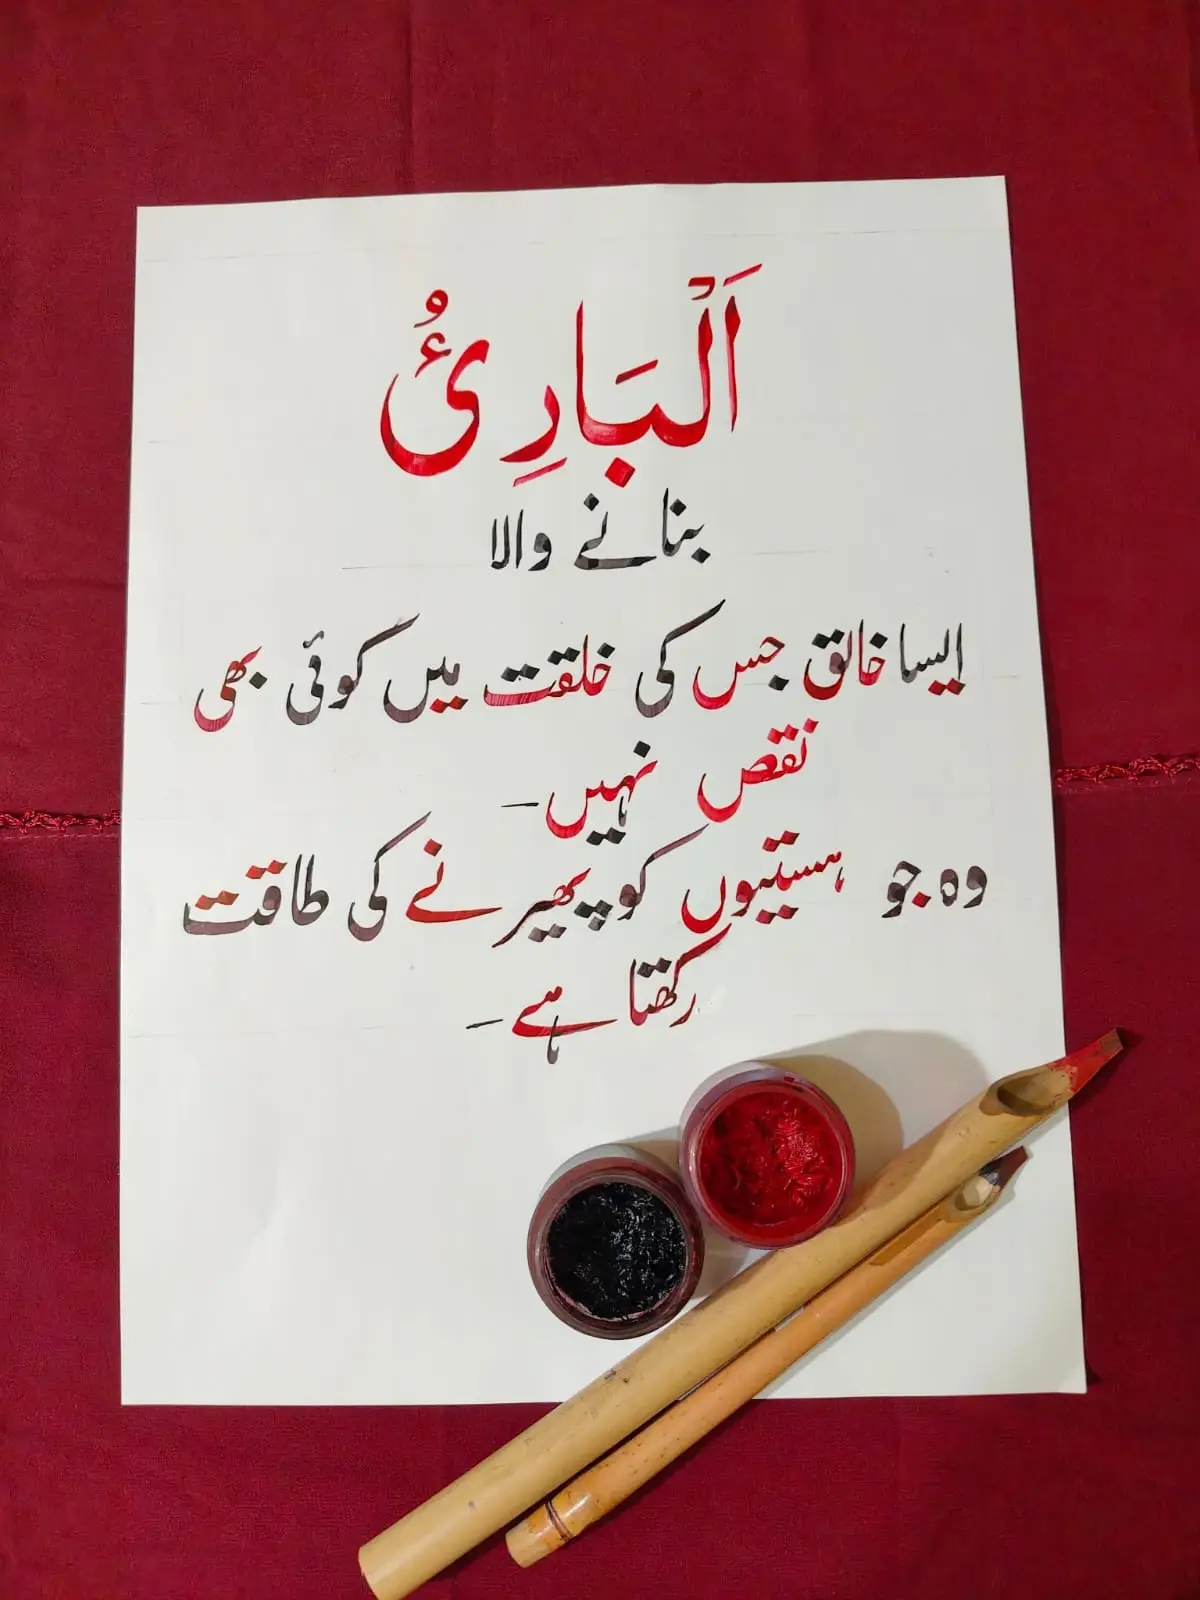 اَلْبَارِئُ
بنانے والا
ایسا خالق جس کی خلقت میں کوئی بھی
نقص نہیں۔
وہ جو ہستیوں کو پھیرنے کی طاقت
رکھتا ہے۔